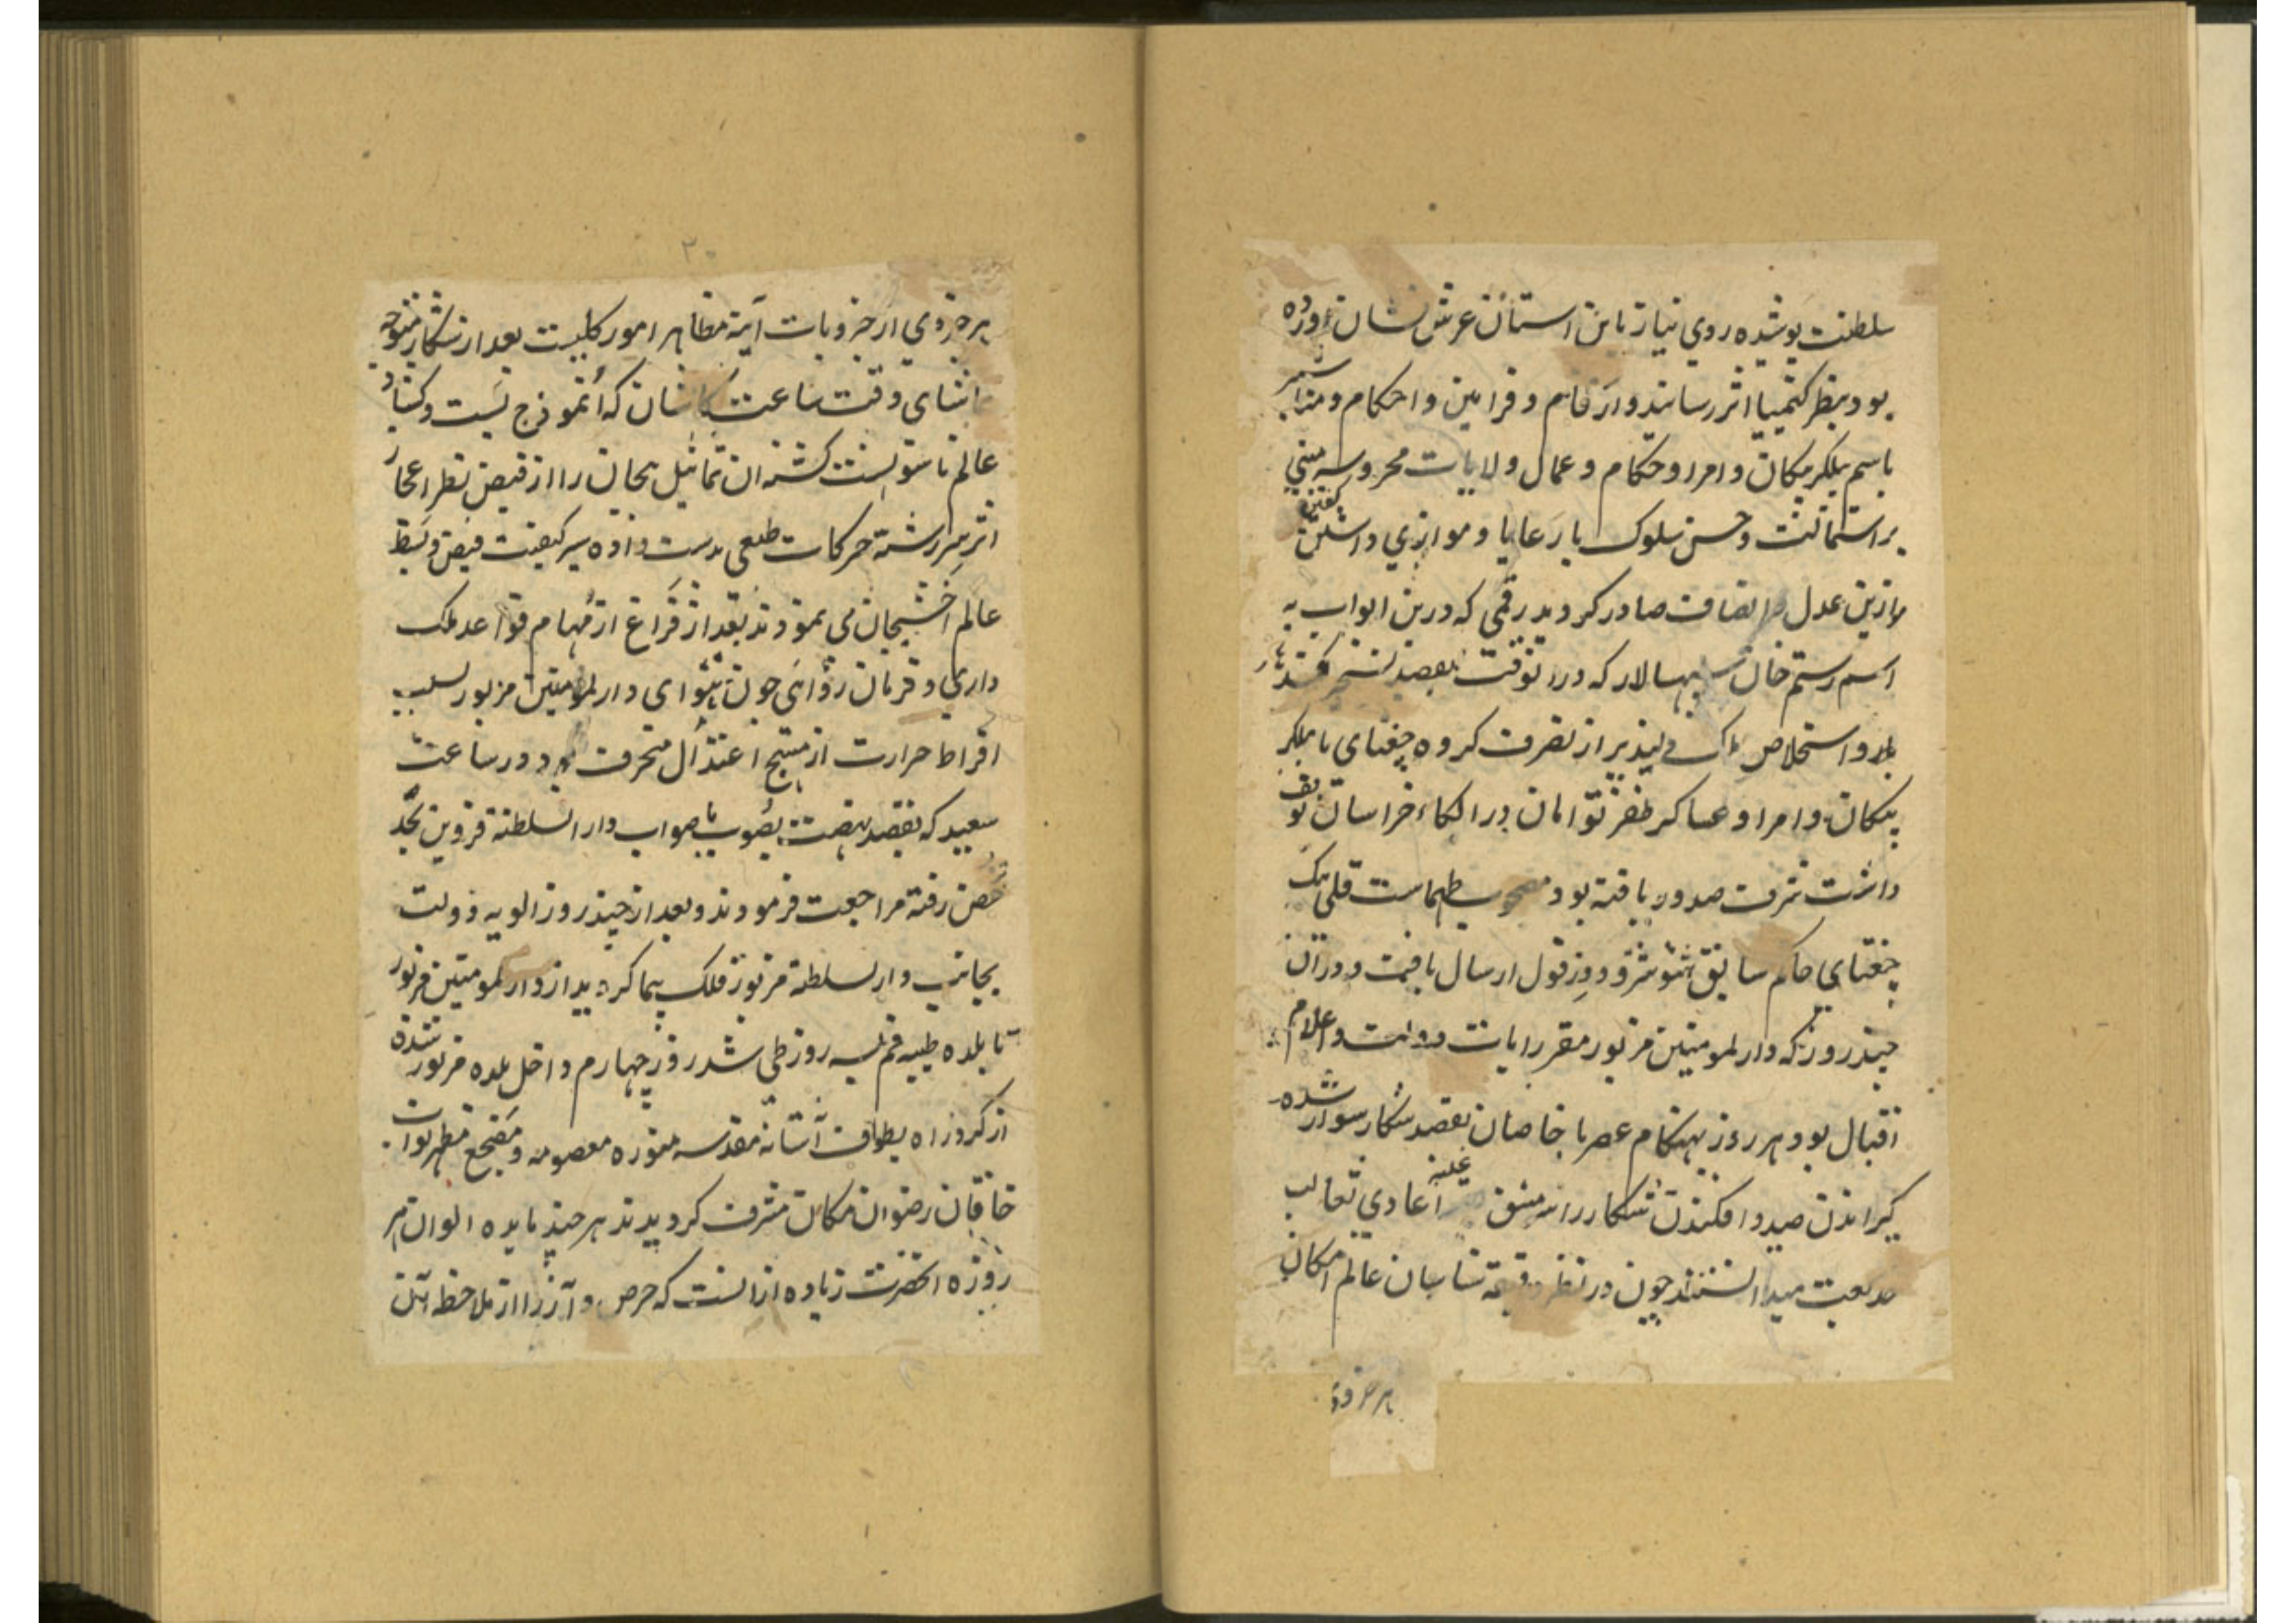 سلطنت پوشیده روی نیاز باین استان عرش نشان اورده
بود بنظر کیمیا اثر رسانید و ارقام و فرامین و احکام و مناشیر
باسم بیکلربیکان و امرا و حکام و عمال ولایات محروسه مبنی
بر استمالت و حسن سلوک با رعایا و موازی داشتن کفتین
موازین عدل و انصاف صادر کردید رقمی که درین ابواب به
اسم رستم خان سپهسالار که در انوقت بقصد تسخیر قندهار
و استخلاص دلپذیر از تصرف کروه چغتای با بیکلر
بیکان و امرا و عساکر ظفر توامان در الکاء خراسان توقف
داشت شرف صدور یافته بود مصحوب طهماست قلی بیک
چغتای حاکم سابق شوشتر و دزفول ارسال یافت و دران
چند روز که دار المومنین مزبور مقر رایات دولت و اعلام
اقبال بود هر روز بهنکام عصر با خاصان بقصد شکار سوار شده
کیراندن صید و افکندن شکار را مشق غلبه اعادی ثعالب
طبیعت میدانستند چون در نظر دقیقه شناسان عالم امکان
هر جزوی
۲۰
هر جزوی از جزویات آینه مظاهر امور کلیست بعد از شکار متوجه
تماشای وقت ساعت کاشان که انموذج بست و کشاد
عالم ناسوتست کشته ان تماثیل بیجان را از فیض نظر اعجاز
اثر سررشته حرکات طبعی بدست داده سیر کیفیت قبض و بسط
عالم اخشیجان می نمودند بعد از فراغ از مهام قواعد ملک
داری و فرمان روائی چون هوای دار المومنین مزبور بسبب
افراط حرارت از منهج اعتدال منحرف بود در ساعت
سعید که بقصد نهضت بصوب باصواب دار السلطنه قزوین بحد
حصن رفته مراجعت فرمودند و بعد از چند روز الویه دولت
بجانب دار السلطنه مزبور فلک پیما کردید از دار المومنین مزبور
تا بلده طیبه قم بسه روز طی شد روز چهارم داخل بلده مزبور شده
از کرد راه بطواف آستانه مقدسه منوره معصومه و مضجع مطهر نواب
خاقان رضوان مکان مشرف کردیدند هر چند مایده الوان هر
روزه انحضرت زیاده از انست که حرص و آز را از ملاحظه آن